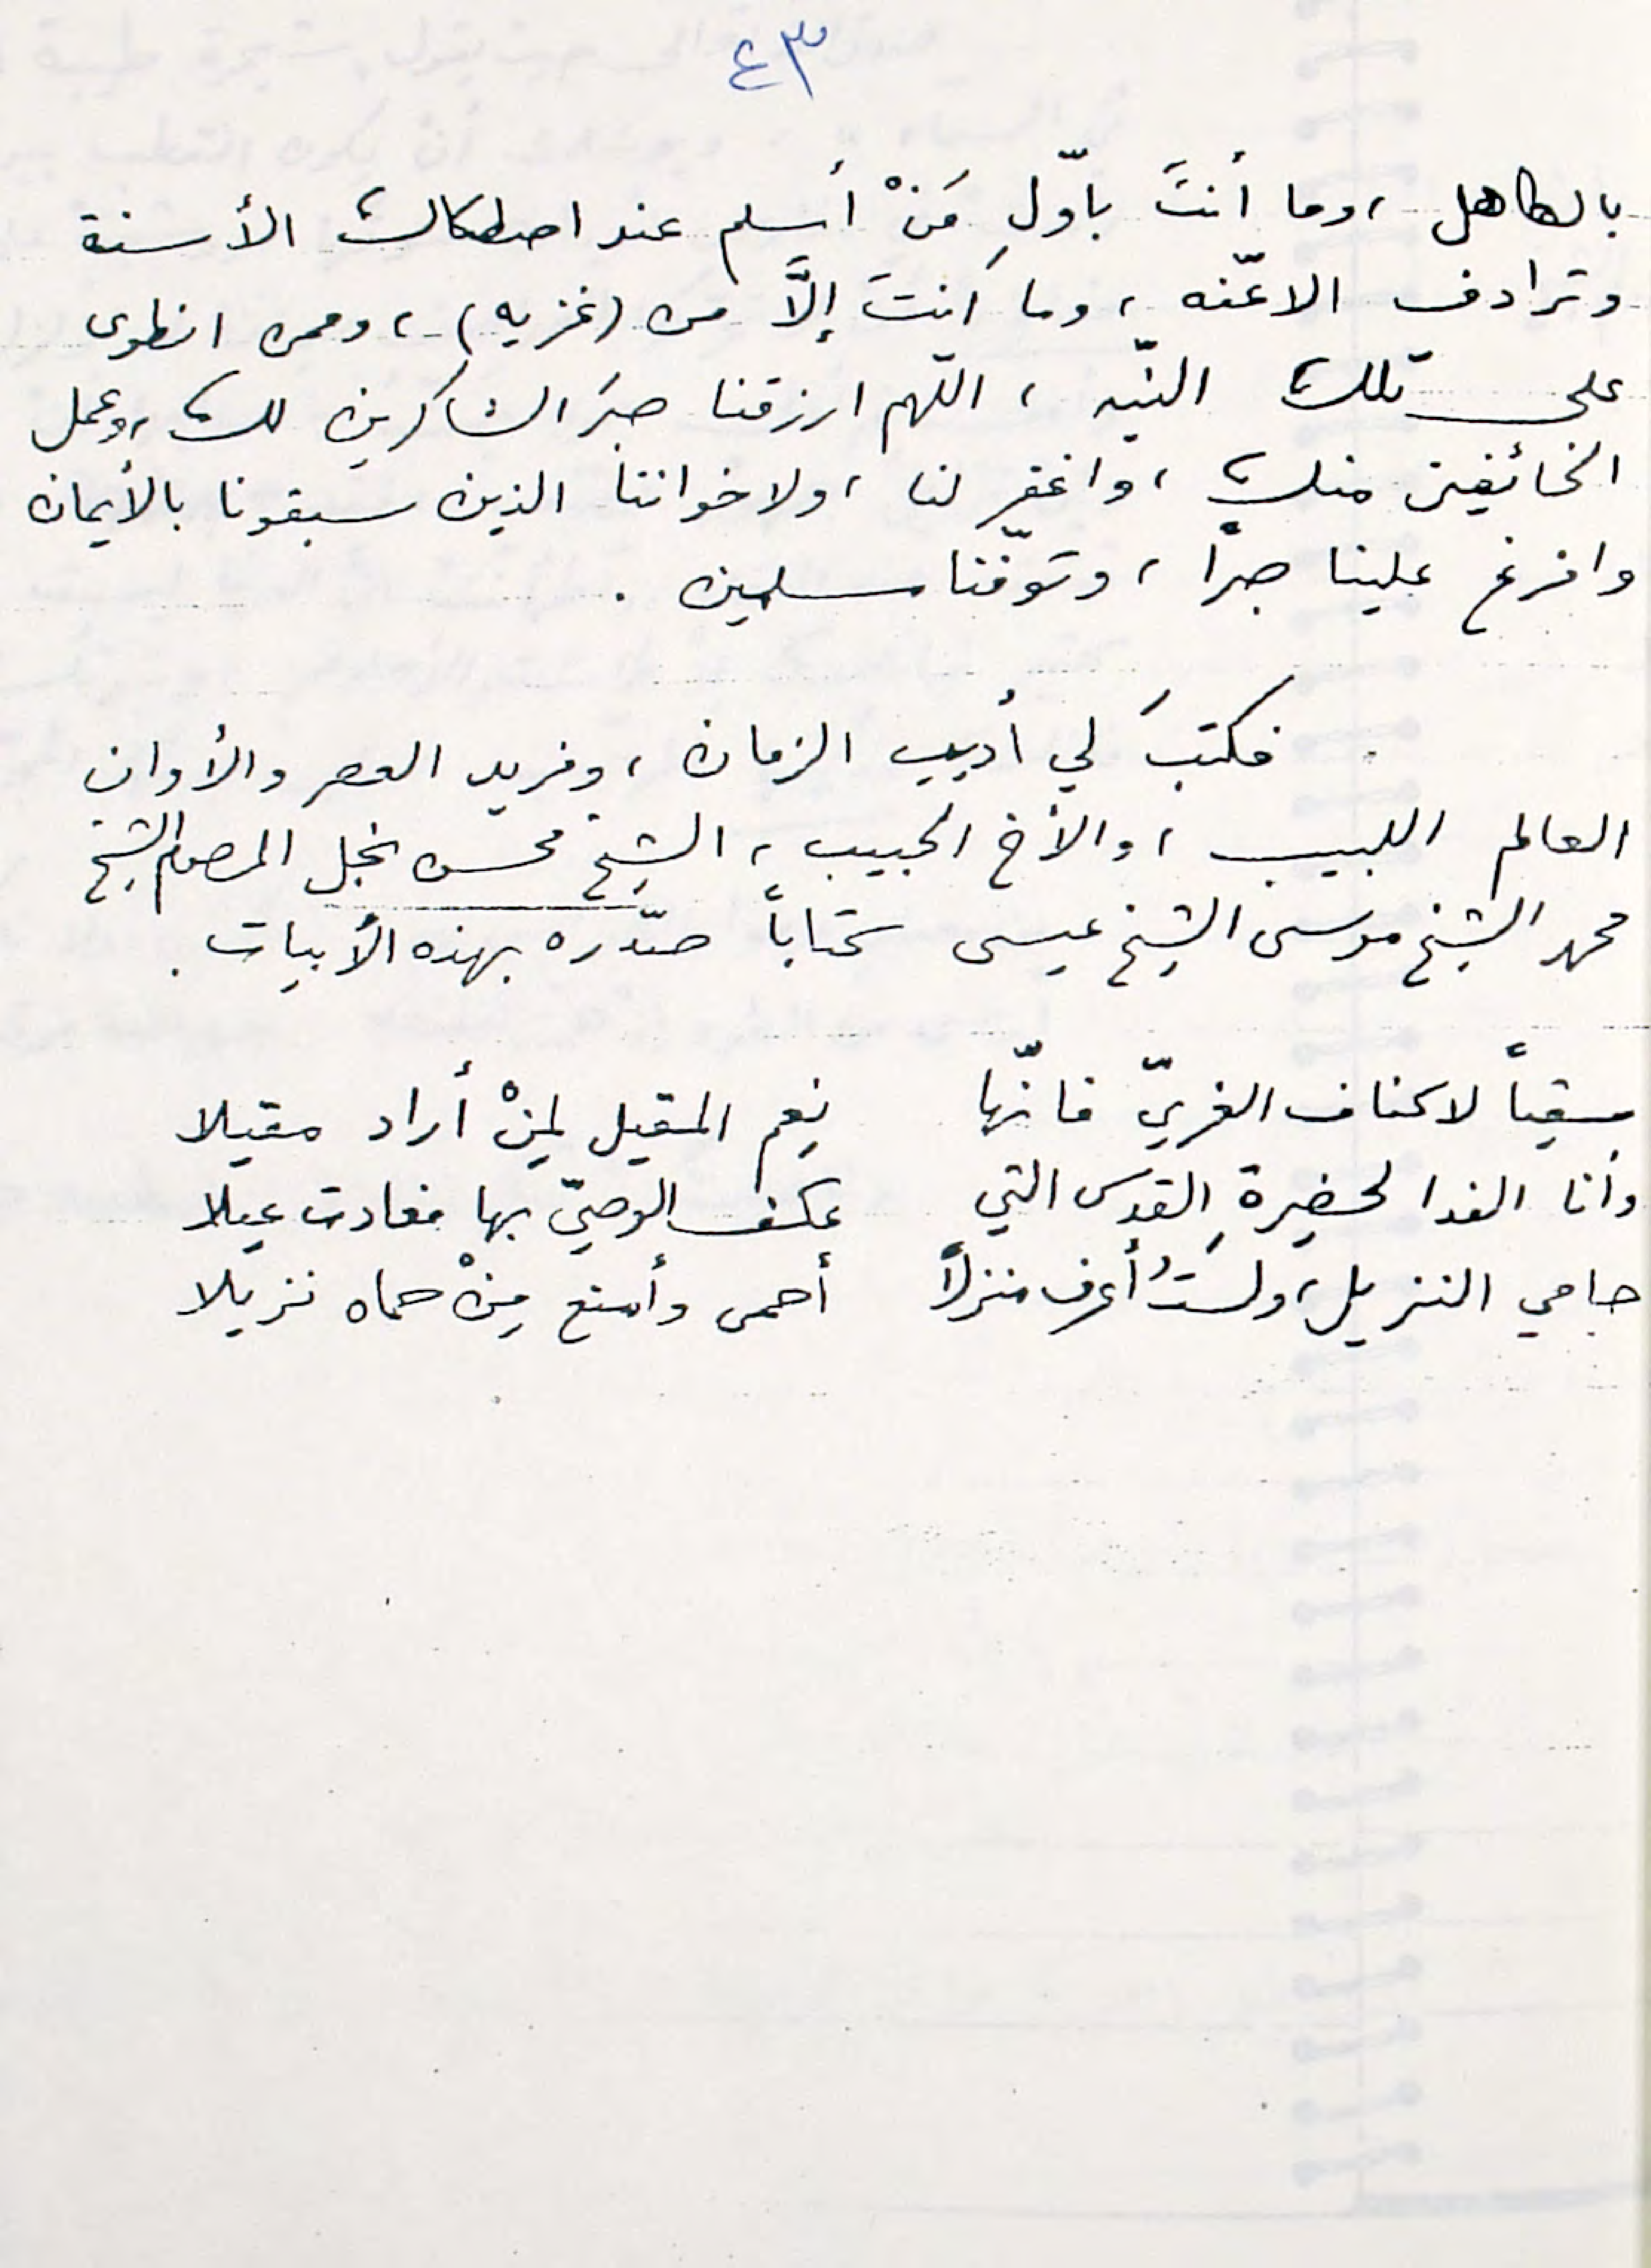 ٤٣
بالكاهل ، وما أنتَ باوّلِ مَنْ أسلم عند اصطكاك الأسنة
وترادف الاعّنه ، وما أنتَ إلَّا من (غزيه) ، وممن انطوى
على تلك النيّه ، اللّهم ارزقنا صبرَ الشاكرين لك ، وعمل
الخائفين منك ، واغفر لنا ، ولاخواننا الذين سبقونا بالأيمان
وافرغ علينا صبراً ، وتوفّنا مسلمين .
فكتبَ لي أديب الزمان ، وفريد العصر والأوان
العالم اللبيب ، والأخ الحبيب ، الشيخ محسن نجل المرحوم الشيخ
محمد الشيخ موسى الشيخ عيسى كتاباً صدّره بهذه الأبيات .
سقياً لاكناف الغريّ فانّها نِعم المقيل لمَنْ أراد مقيلا
وأنا الفدا لحضيرةِ القدس التي عكف الوصيّ بها فعادت غيلا
حامي النزيل ، ولستُ أعرف منزلاً أحمى وأمنع مِنْ حماه نزيلا